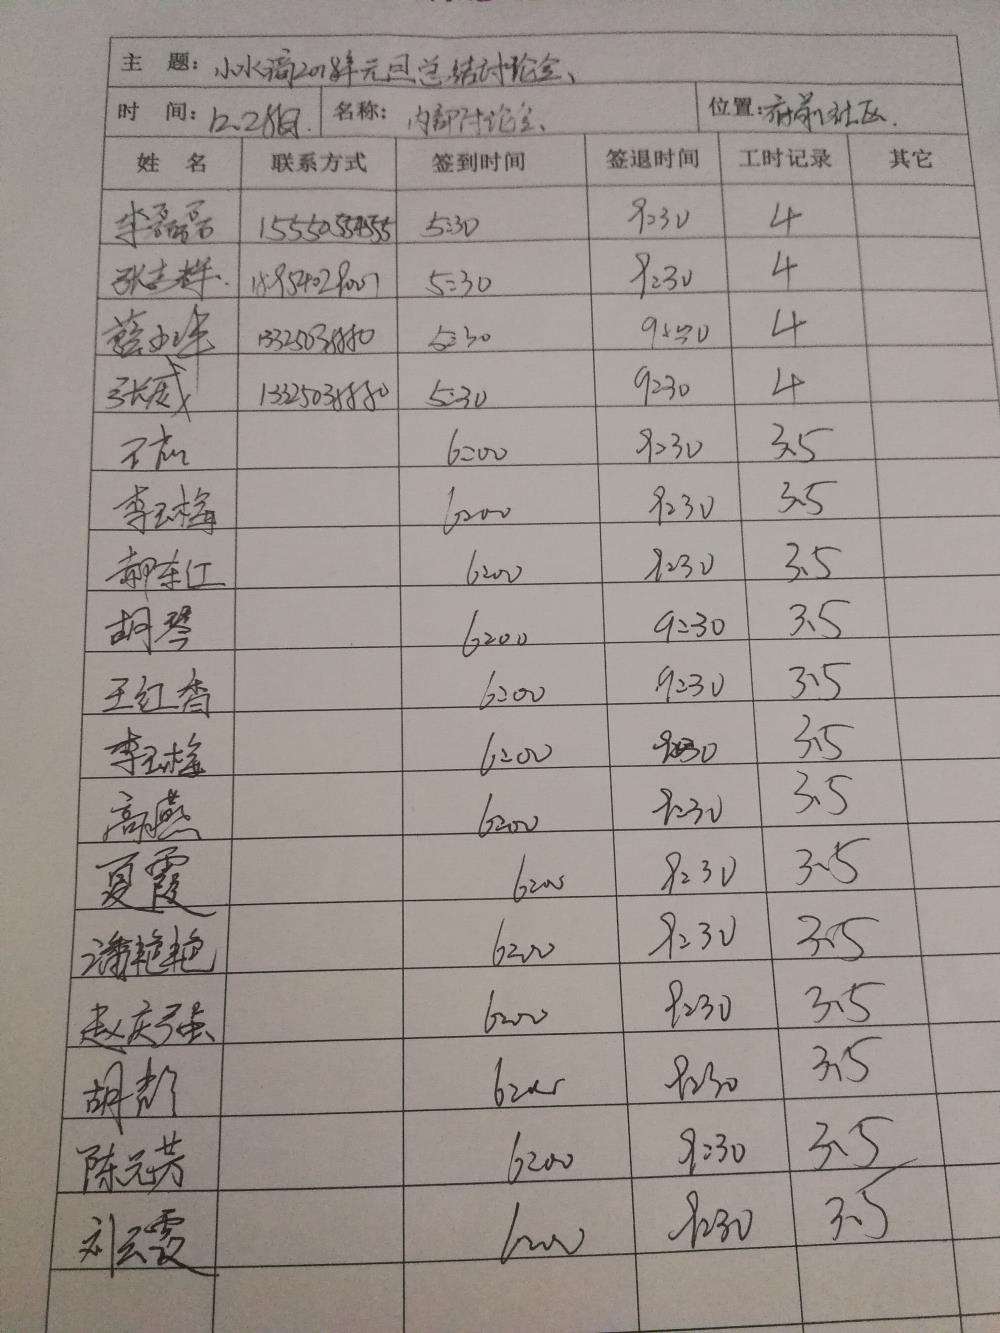 主 题: 小水滴2018年元旦总结讨论会、
时 间: 12.28日. 名称: 内部讨论会、 位置: 府前社区.
姓 名 联系方式 签到时间 签退时间 工时记录 其它
李磊磊 5:30 9:30 4
张志群. 5:30 9:30 4
薛 5:30 9:30 4
张成 5:30 9:30 4
6:00 9:30 3.5
李玉梅 6:00 9:30 3.5
郝东红 6:00 9:30 3.5
胡琴 6:00 9:30 3.5
王红香 6:00 9:30 3.5
李玉梅 6:00 9:30 3.5
高燕 6:00 9:30 3.5
夏霞 6:00 9:30 3.5
潘艳艳 6:00 9:30 3.5
赵庆强 6:00 9:30 3.5
胡彭 6:00 9:30 3.5
陈元芳 6:00 9:30 3.5
刘云霞 6:00 9:30 3.5